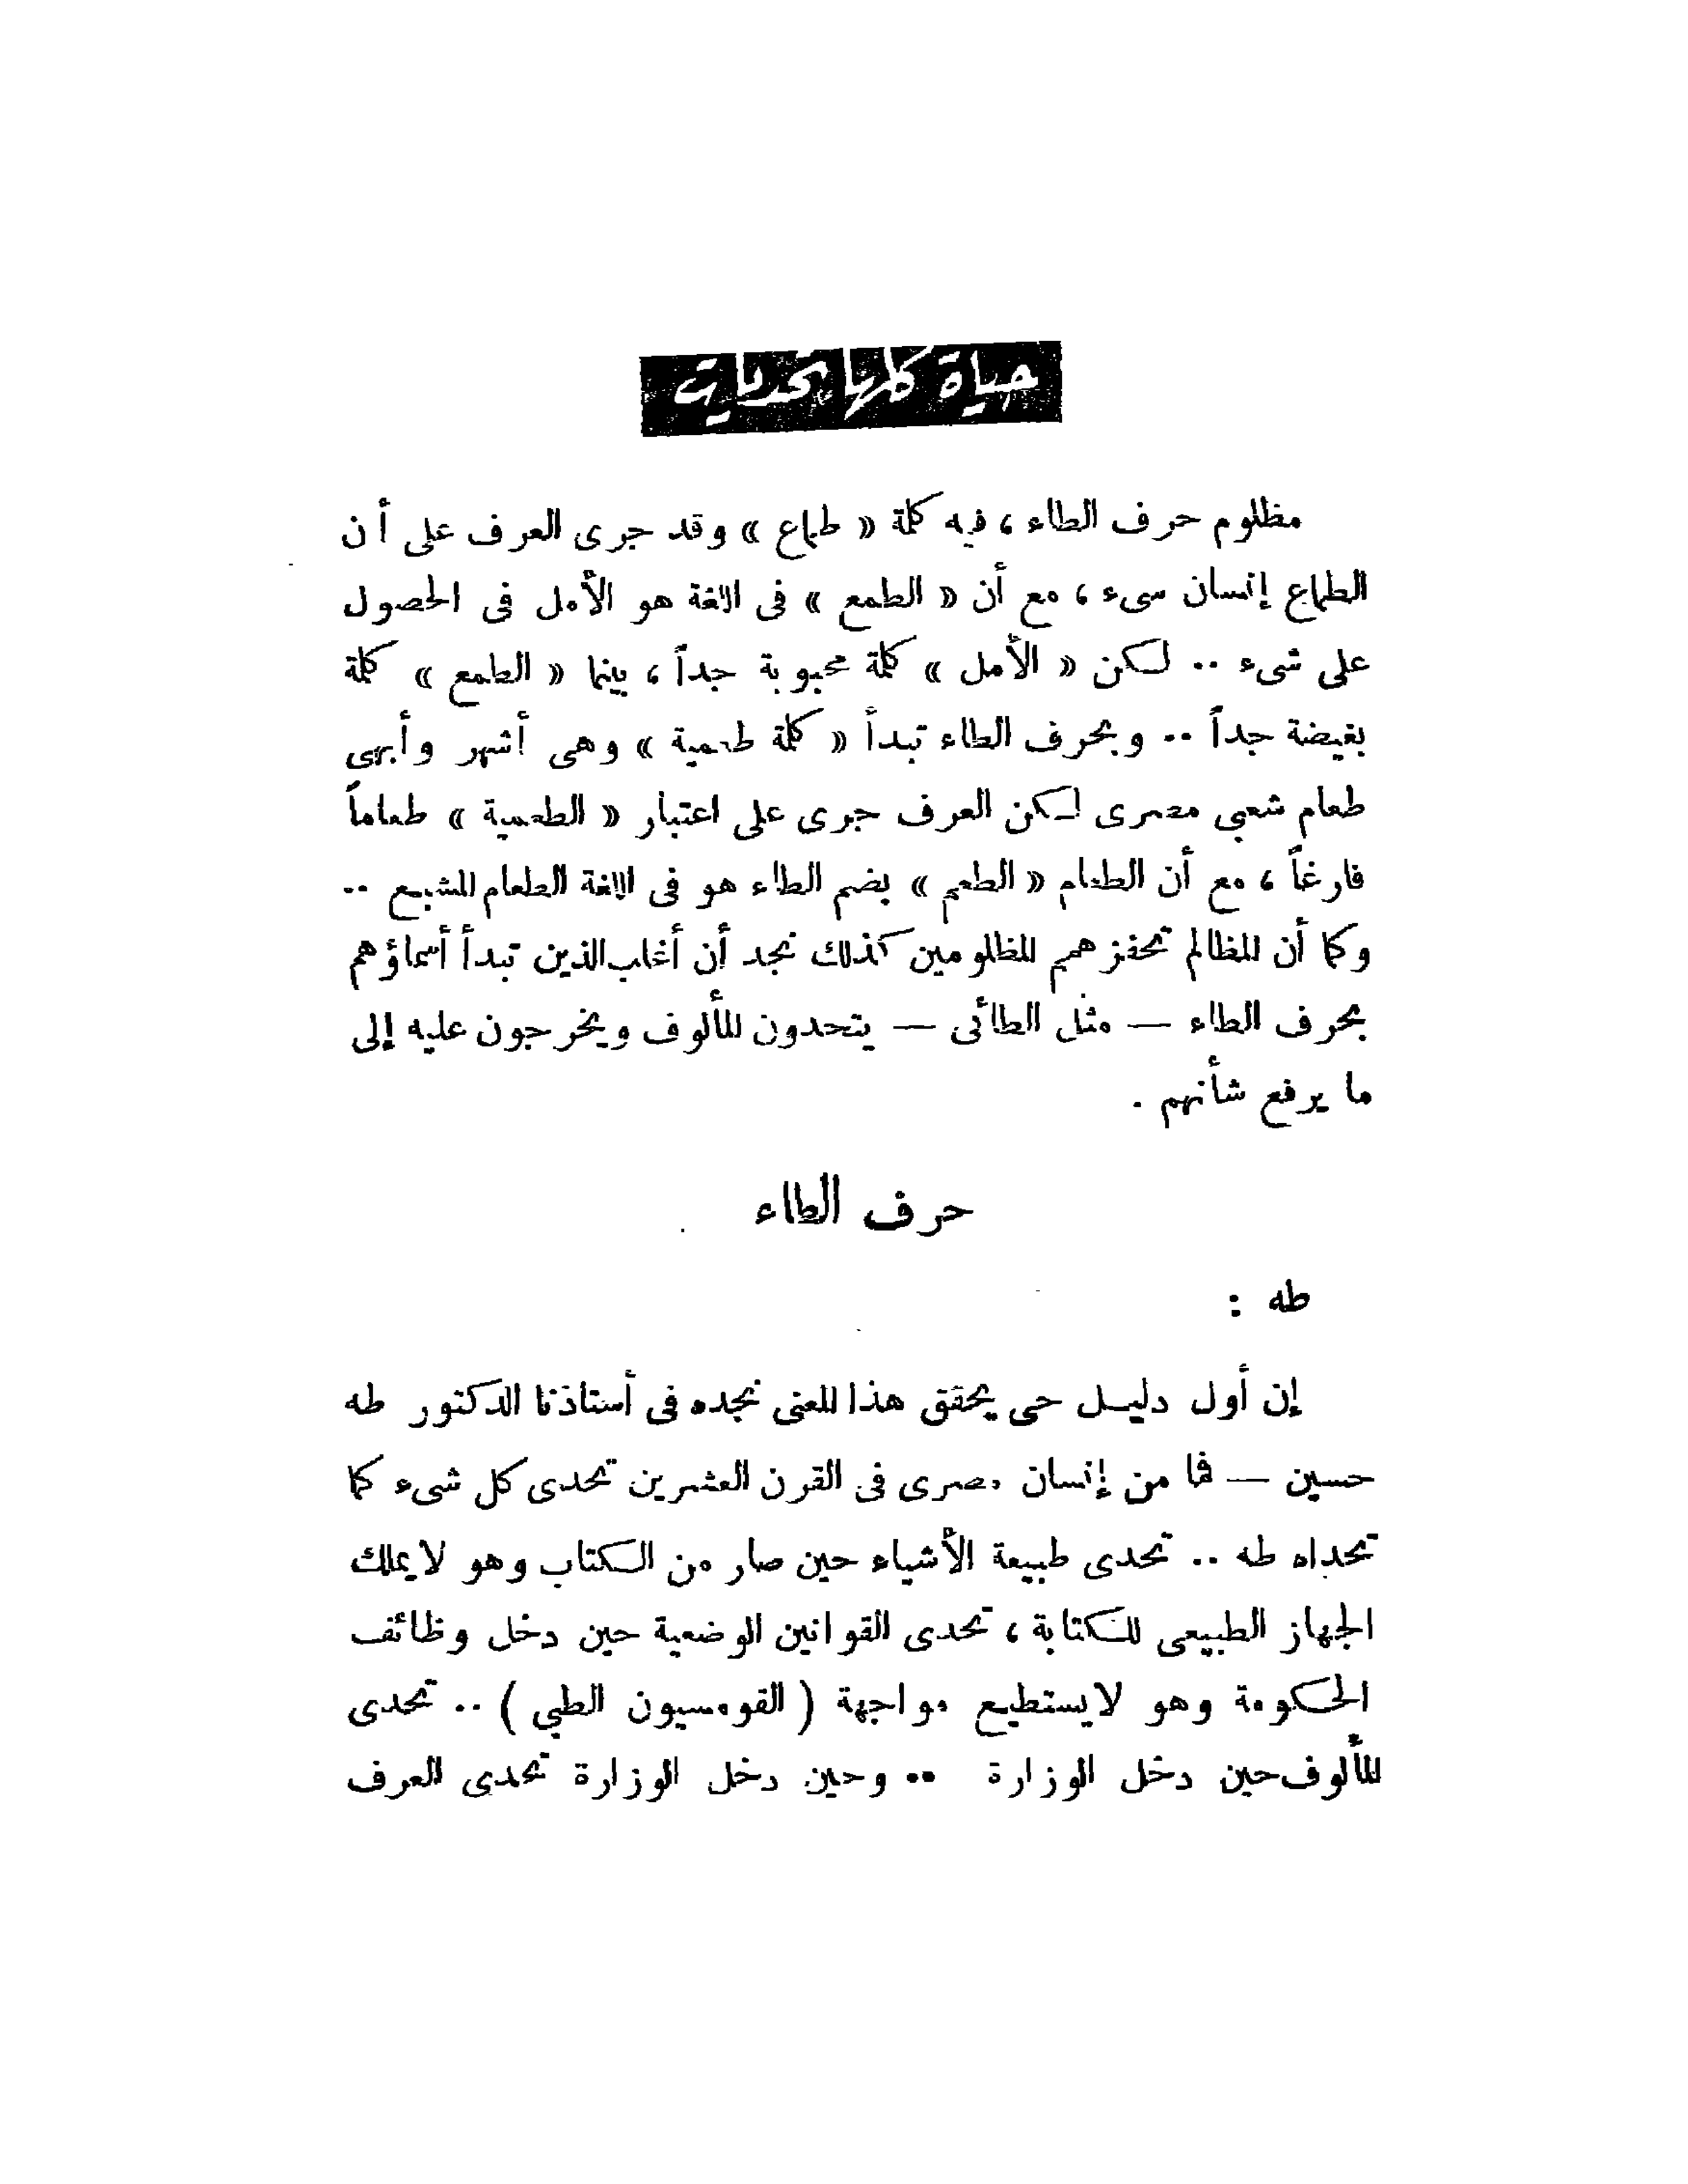 حياة كلها تحديات
مظلوم حرف الطاء ، فيه كلمة « طماع » وقد جرى العرف على أن
الطماع إنسان سىء ، مع أن « الطمع » فى اللغة هو الأمل فى الحصول
على شىء .. لكن « الأمل » كلمة محبوبة جداً ، بينما « الطمع » كلمة
بغيضة جداً .. وبحرف الطاء تبدأ « كلمة طعمية » وهى أشهر وأبهى
طعام شعبي مصرى لكن العرف جرى على اعتبار « الطعمية » طعاماً
فارغاً ، مع أن الطعام « الطعم » بضم الطاء هو فى اللغة الطعام المشبع ..
وكما أن المظالم تحفز همم المظلومين كذلك نجد أن أغلب الذين تبدأ أسماؤهم
بحرف الطاء — مثل الطائى — يتحدون المألوف ويخرجون عليه إلى
ما يرفع شأنهم .
حرف الطاء
طه :
إن أول دليل حى يحقق هذا المعنى نجده فى أستاذنا الدكتور طه
حسين — فما من إنسان مصرى فى القرن العشرين تحدى كل شىء كما
تحداه طه .. تحدى طبيعة الأشياء حين صار من الكتاب وهو لا يملك
الجهاز الطبيعى للكتابة ، تحدى القوانين الوضعية حين دخل وظائف
الحكومة وهو لا يستطيع مواجهة ( القومسيون الطبي ) .. تحدى
المألوف حين دخل الوزارة .. وحين دخل الوزارة تحدى العرف